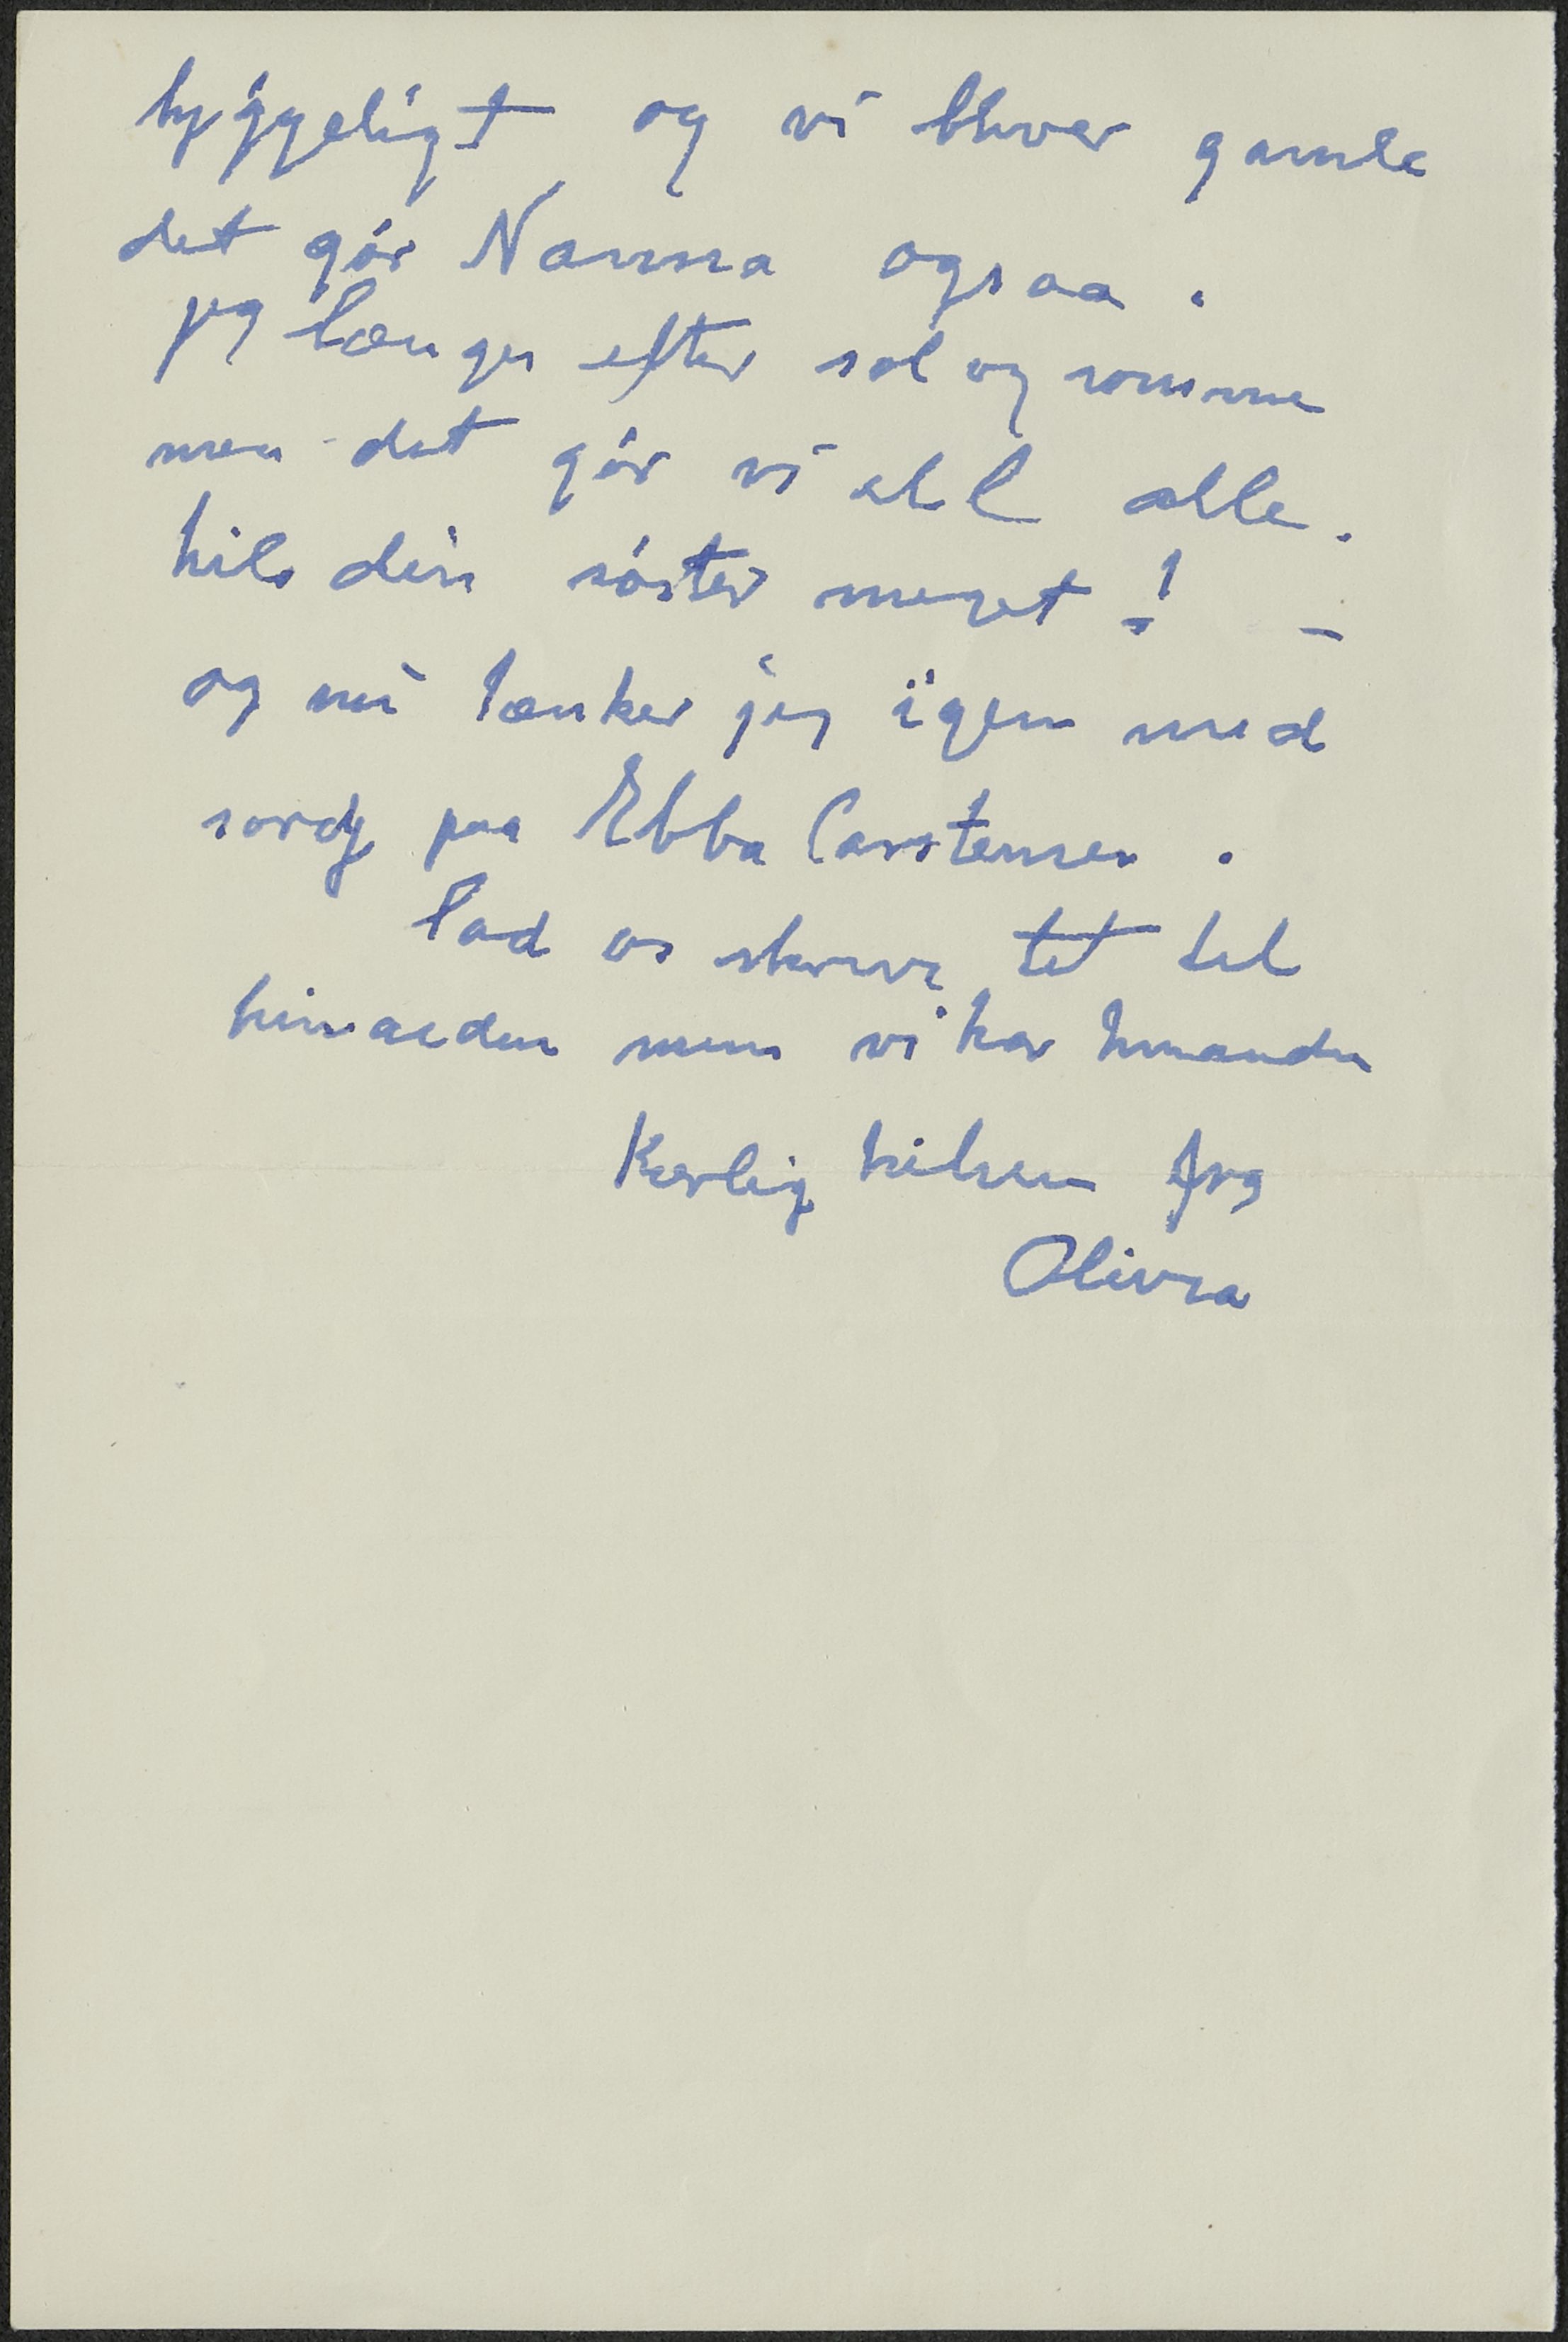 hyggeligt og vi bliver gamle
det gór Nanna ogsaa.
jeg længes efter sol og somme
men det gór vi vel alle.
hils din sóster meget! –
og nu tænker jeg igen med
sorg paa Ebba Carstensen.
lad os skrive tet til
hinanden mens vi har hinanden
Kærlig hilsen fra
Olivia